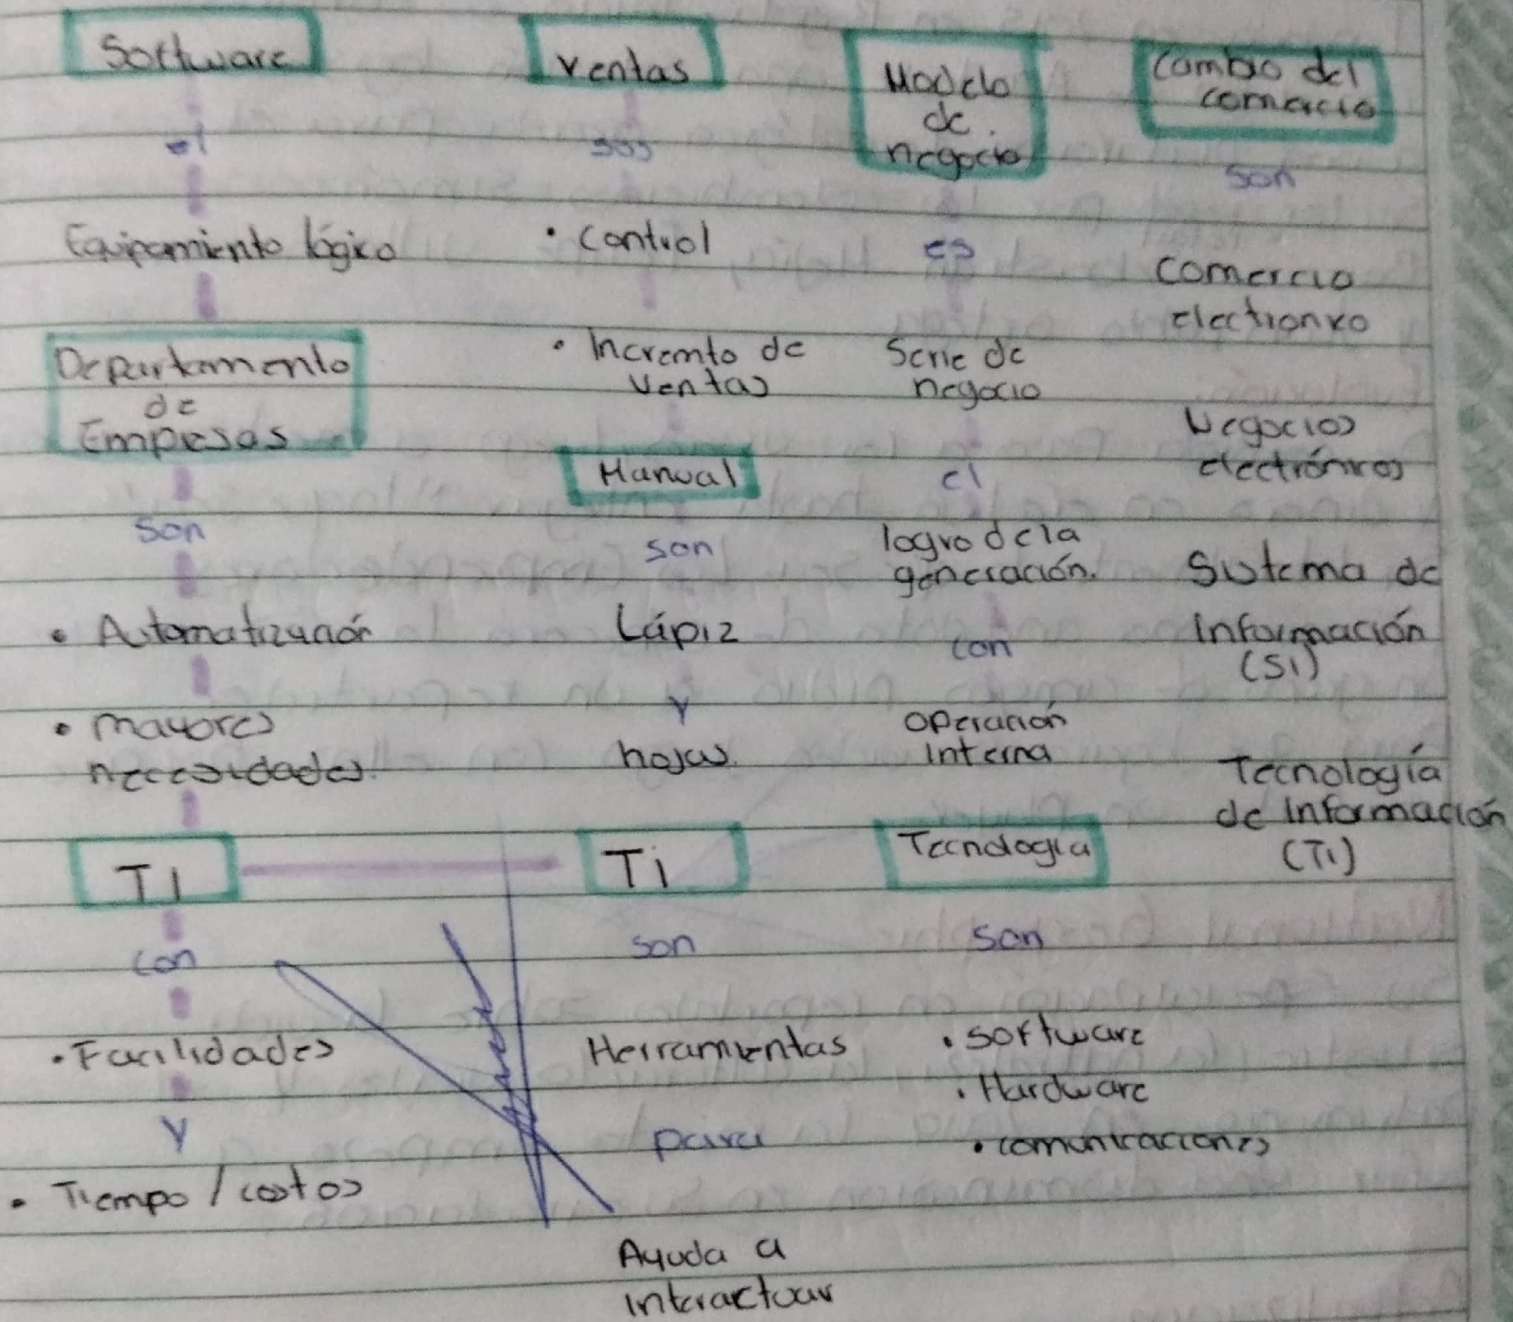 Software
el
Equipamiento lógico
Departamento
de
Empresas
Son
• Automatización
• mayores
necesidades.
TI
con
• Facilidades
y
• Tiempo / costos
Ventas
sus
• Control
• Incremto de
Ventas
Manual
son
Lápiz
y
hojas.
Ti
son
Herramientas
para
Ayuda a
interactuar
Modelo
de.
negocio
es
Serie de
negocio
el
logro de la
generación.
con
Operación
Interna
Tecnología
Son
• Software
• Hardware
• comunicaciones
Cambio del
comercio
Son
Comercio
electronico
Negocios
electrónicos
Sistema de
Información
(SI)
Tecnología
de Información
(TI)